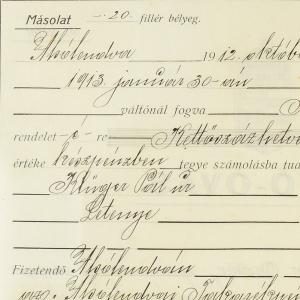 Másolat -.20. fillér bélyeg.
Alsólendva 1912. októb
1913. január 30-án
váltónál fogva
rendelet -é- re Kettőszázhetv
értéke készpénzben tegye számolásba tud
Klüger Pál úr
Letenye
Fizetendő Alsólendván
az: Alsólendvai Takarékpén